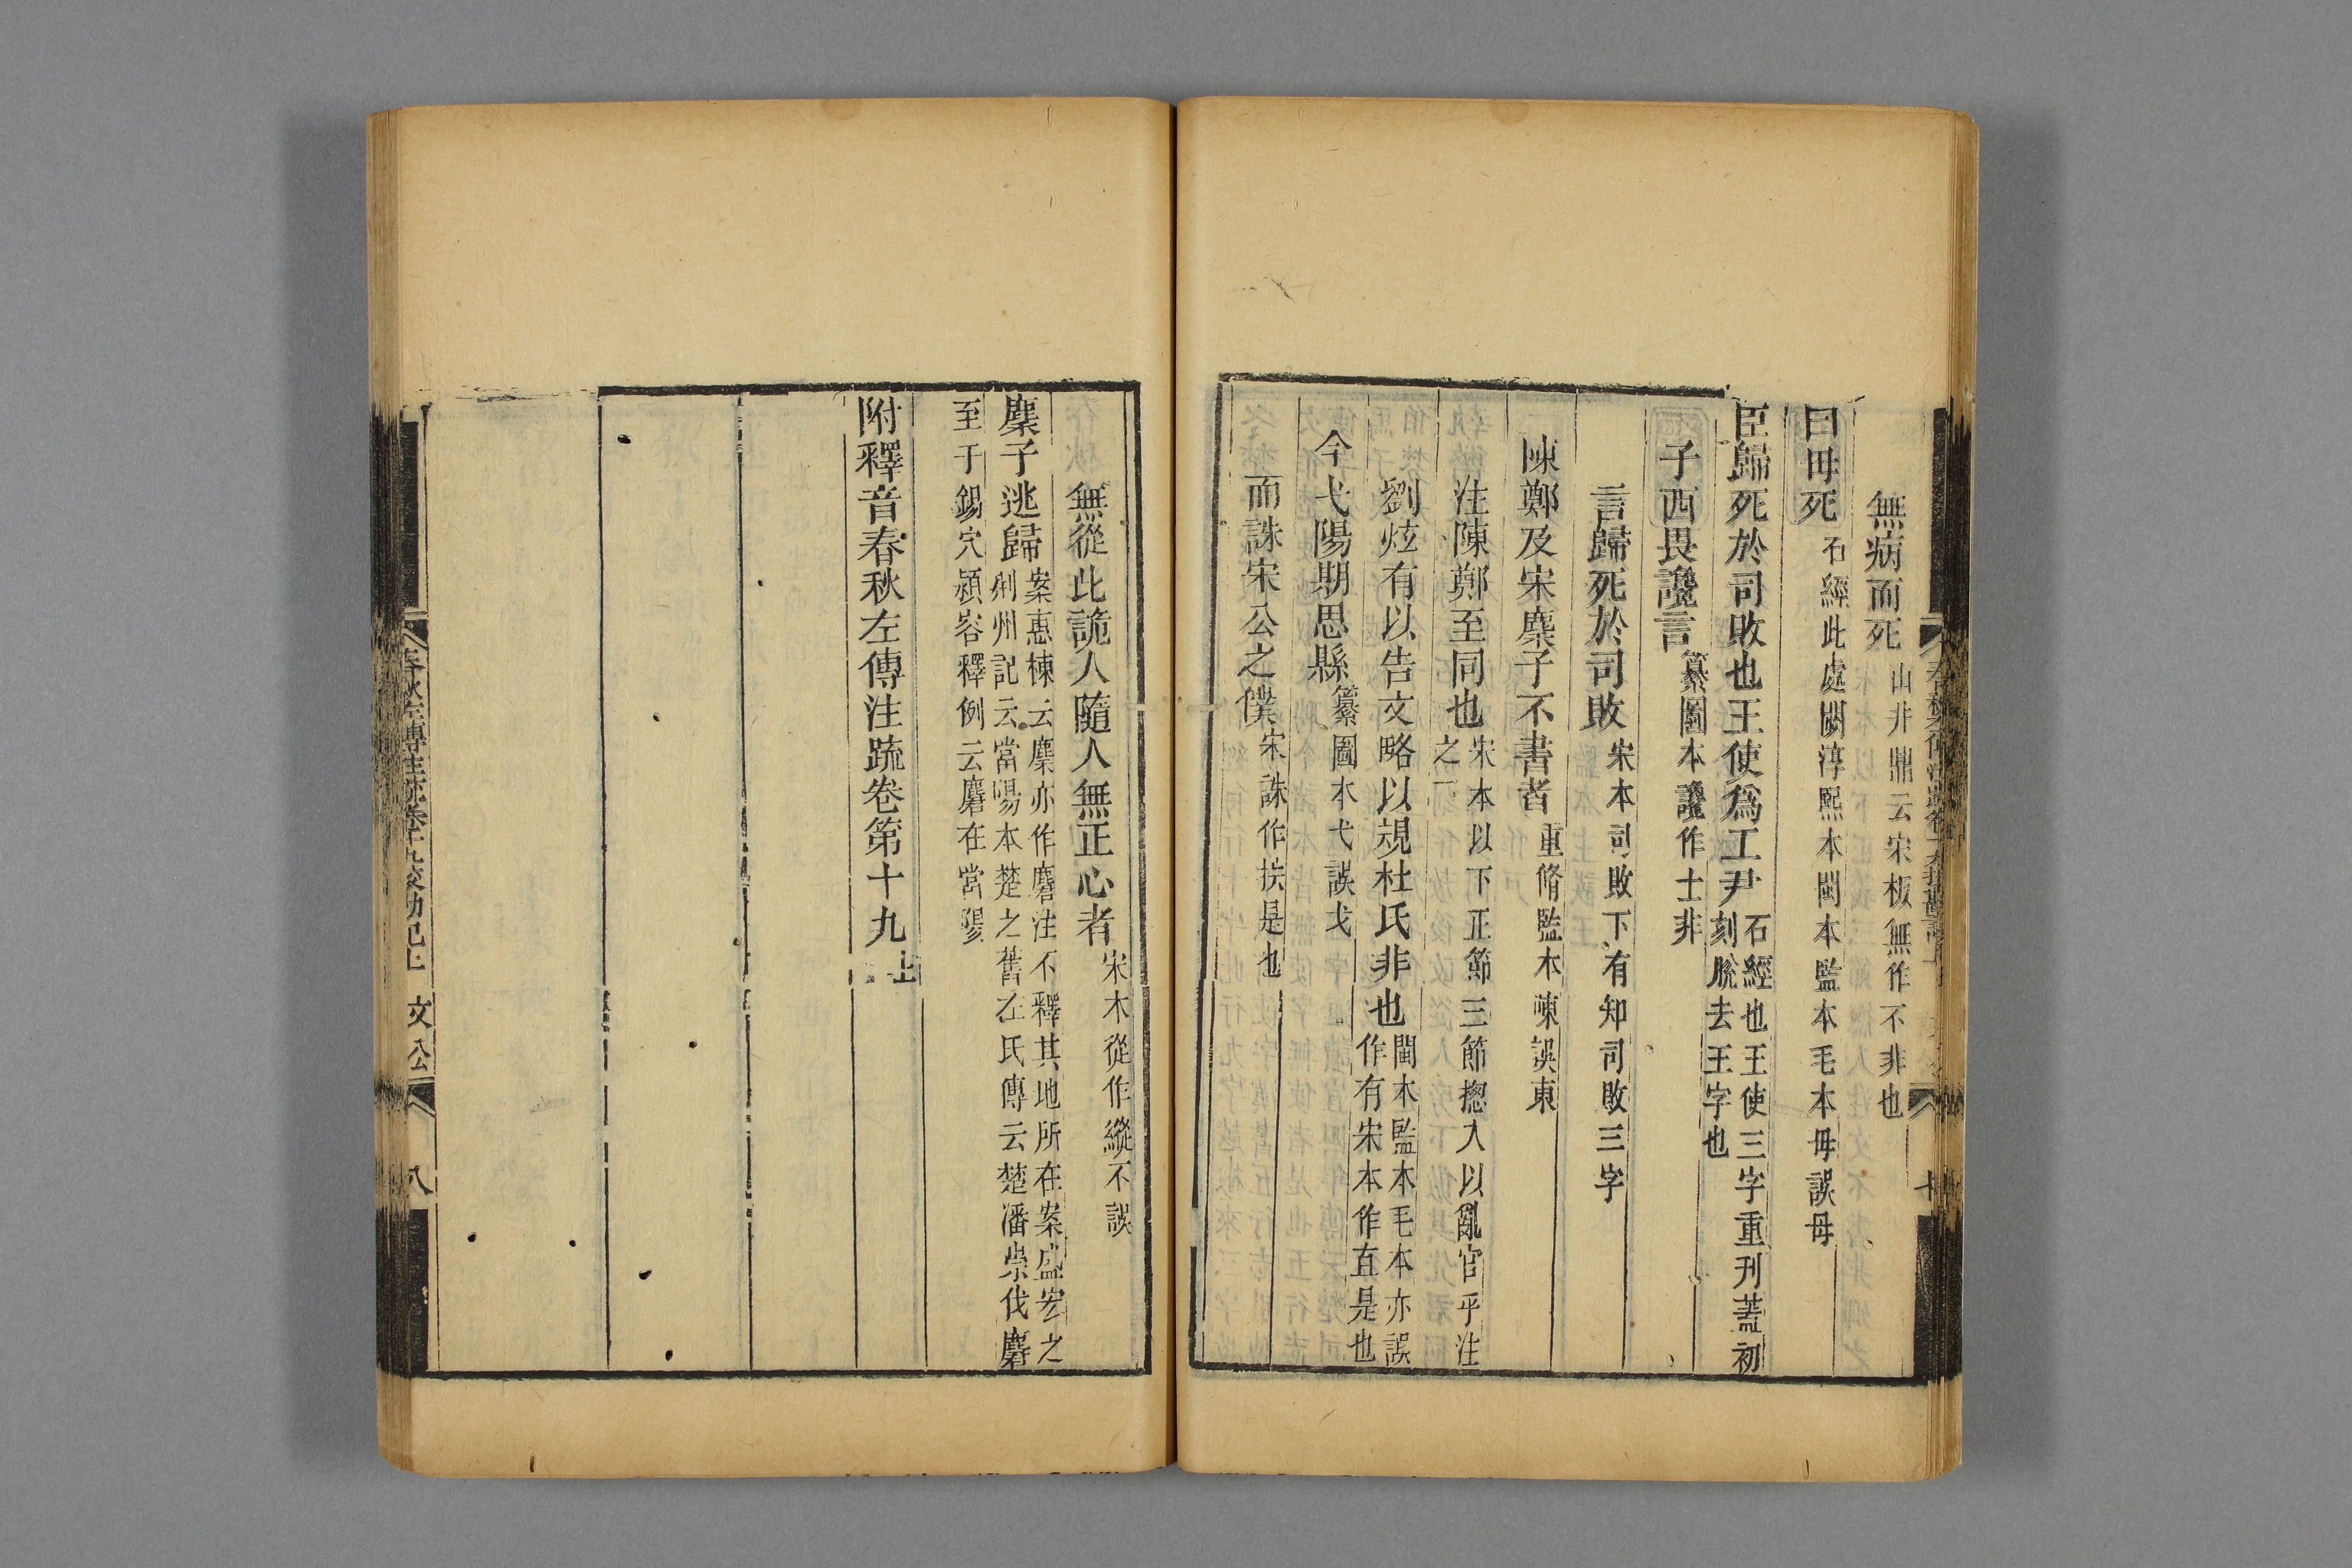 無病而死山井鼎云宋板無作不非也
曰毋死石經此處闕淳熙本閩本監本毛本毋誤毋
臣歸死於司敗也王使爲工尹石經也王使三字重刊蓋初
刻脫去王字也
子西畏讒言纂圖本讒作士非
言歸死於司敗宋本司敗下有知司敗三字
陳鄭及宋麇子不書者重脩監本陳誤東
注陳鄭至同也宋本以下正節三節揔入以亂官乎注
之下
劉炫有以告文略以規杜氏非也閩本監本毛本亦誤
作有宋本作直是也
今弋陽期思縣纂圖本弋誤戈
而誅宋公之僕宋誅作抶是也
無從此詭人隨人無正心者宋本從作縱不誤
麇子逃歸案惠棟云麇亦作麏注不釋其地所在案盛宏之
荊州記云當陽本楚之舊左氏傳云楚潘崇伐麏
至于錫穴潁容釋例云麏在當陽
附釋音春秋左傳注疏卷第十九上
春秋左傳注疏卷十九校勘記上 文公 八